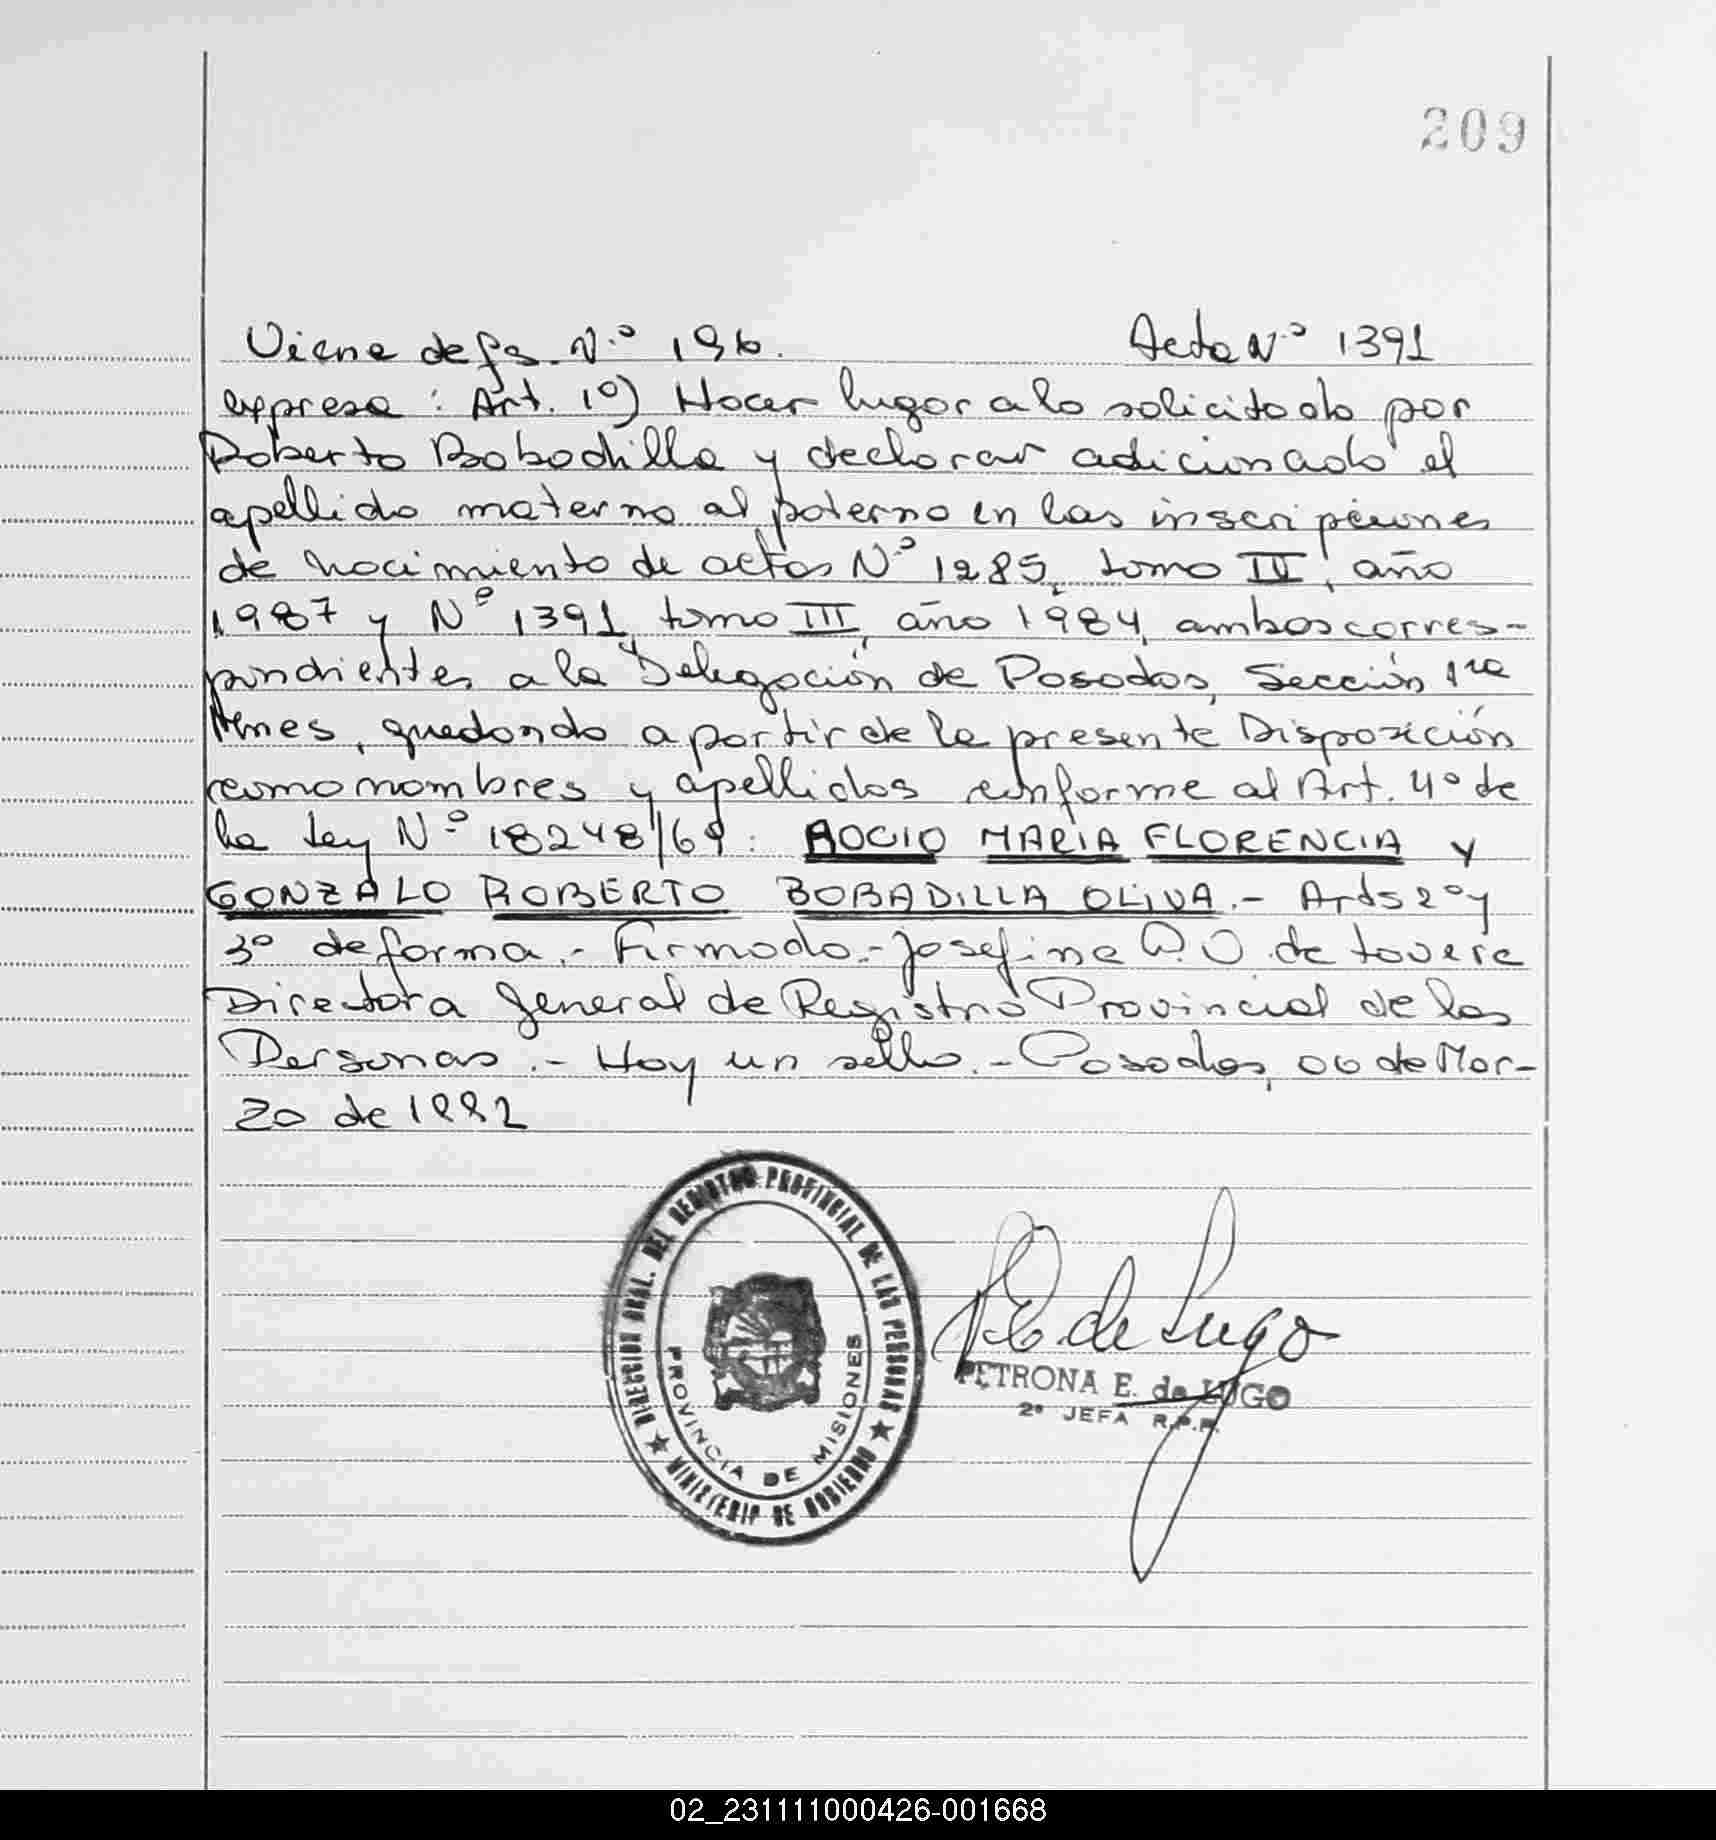 209
Viene de fs. N.º 196. Acta N.º 1391
expresa: Art. 1º) Hacer lugar a lo solicitado por
Roberto Bobadilla y declarar adicionado el
apellido materno al paterno en las inscripciones
de nacimiento de actas Nº 1285, tomo IV, año
1987 y Nº 1391, tomo III, año 1984, ambos corres-
pondientes a la Delegación de Posadas, Sección 1ra
Mnes, quedando a partir de la presente Disposición
como nombres y apellidos conforme al Art. 4º de
la Ley Nº 18248/69: ROCIO MARIA FLORENCIA y
GONZALO ROBERTO BOBADILLA OLIVA.- Arts 2º y
3º de forma.- Firmado.- Josefina O. de
Directora General de Registro Provincial de las
Personas.- Hay un sello.- Posadas, 06 de Mar-
zo de 1992
DIRECCION GRAL. DEL REGISTRO PROVINCIAL DE LAS PERSONAS
PROVINCIA DE MISIONES
MINISTERIO DE GOBIERNO
P E de Lugo
PETRONA E. de LUGO
2º JEFA R.P.P.
02_231111000426-001668